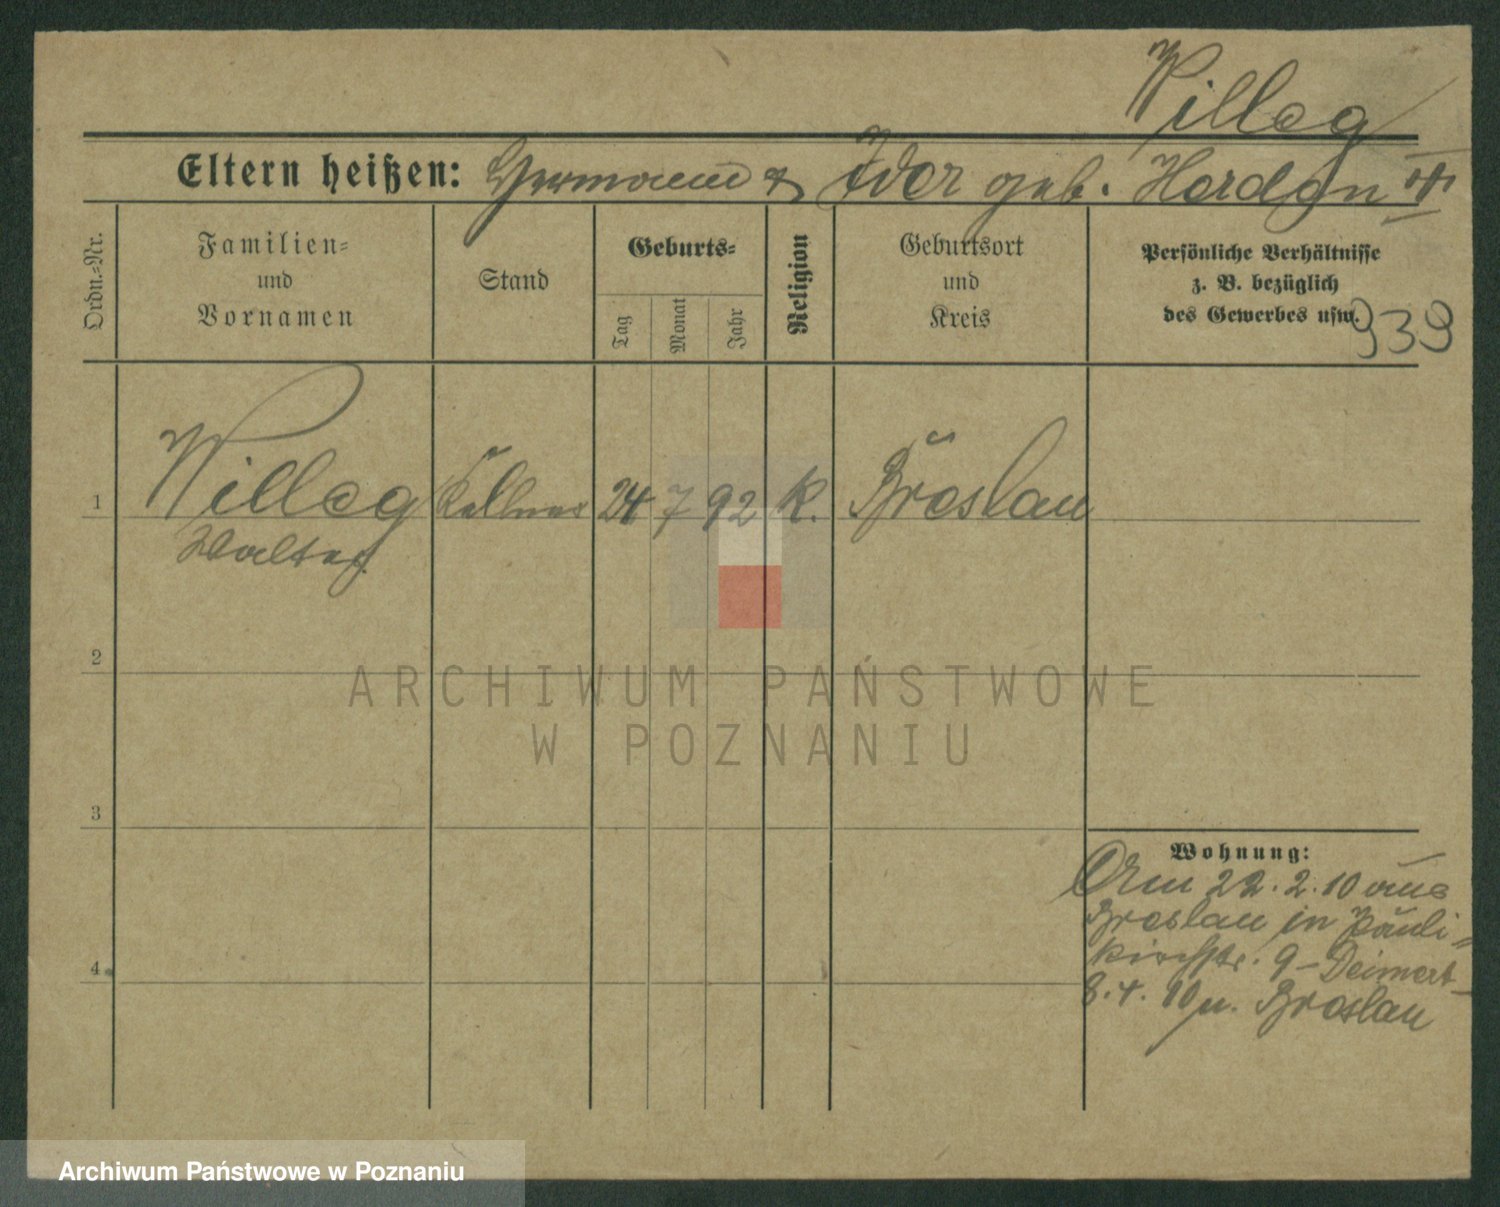 Willeg
Eltern heißen: Hermann & Ida geb.
Ordn.-Nr.
Familien-
und
Vornamen
Stand
Geburts-
Tag
Monat
Jahr
Religion
Geburtsort
und
Kreis
Persönliche Verhältnisse
z. B. bezüglich
des Gewerbes usw.
939
1 Willeg Kellner 24 7 92 K. Breslau
Walter
2
3
4
Wohnung:
Am 22.2.10 aus
Breslau in Pauli-
kirchstr. 9 -
8.4.10 n. Breslau
ARCHIWUM PAŃSTWOWE
W POZNANIU
Archiwum Państwowe w Poznaniu